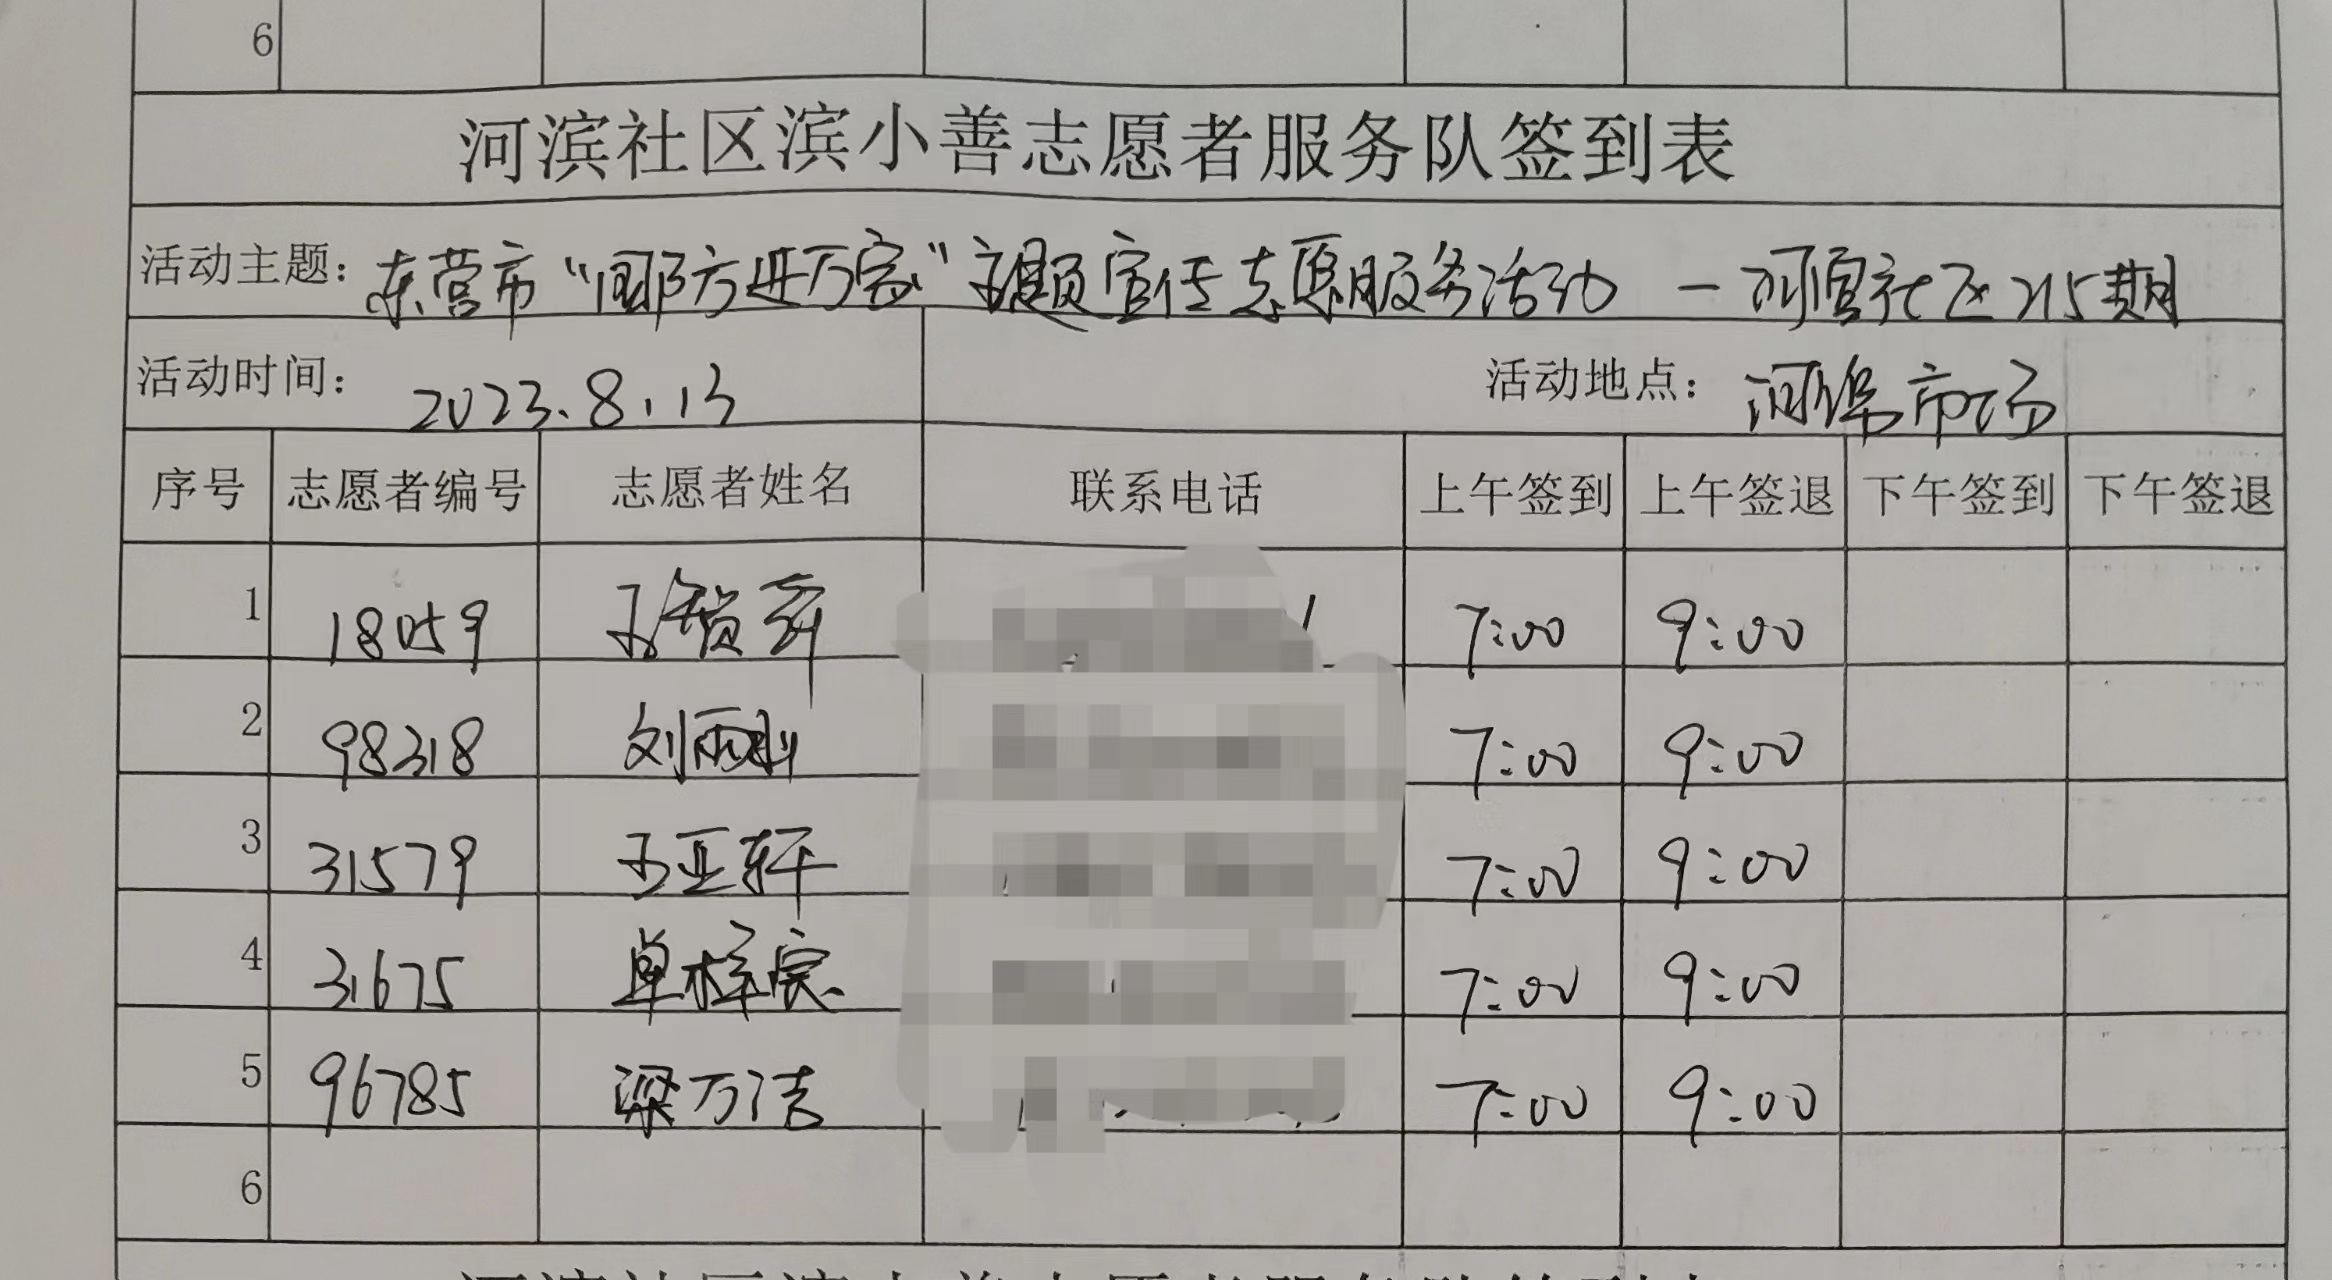 6
河滨社区滨小善志愿者服务队签到表
活动主题: 东营市“国防万进万家”主题宣传志愿服务活动 — 河滨社区215期
活动时间: 2023.8.13 活动地点: 河滨市场
序号 志愿者编号 志愿者姓名 联系电话 上午签到 上午签退 下午签到 下午签退
1 18059 7:00 9:00
2 98318 刘雨 7:00 9:00
3 31579 王亚轩 7:00 9:00
4 31675 单梓宸 7:00 9:00
5 96785 梁万洁 7:00 9:00
6